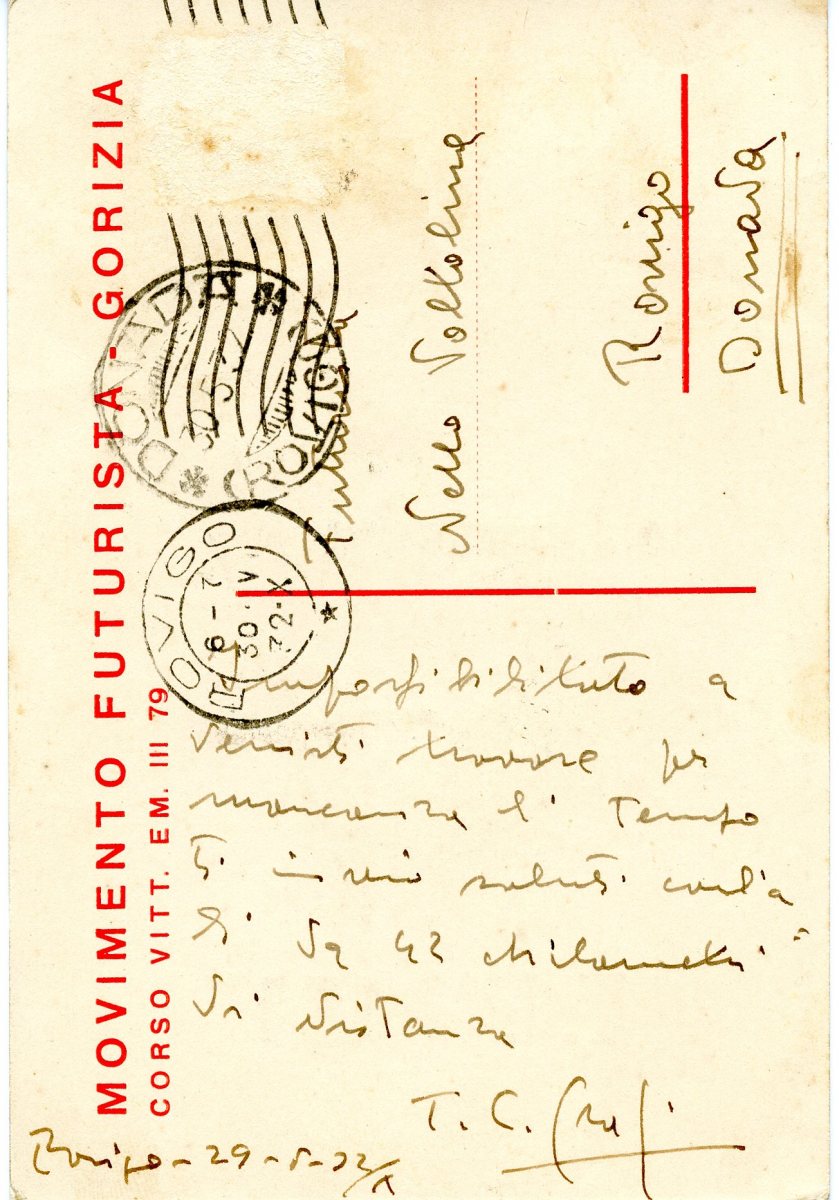 MOVIMENTO FUTURISTA - GORIZIA
CORSO VITT. EM. III 79
DONADA
30 5 32
(ROVIGO)
ROVIGO
6-7
30·V
32-X
Nello Voltolina
Rovigo
Donada
impossibilitato a
venirti trovare per
mancanza di tempo
ti invio saluti cordia
li da 42 chilometri
di distanza
T. C. Crali
Rovigo - 29-5-32/X